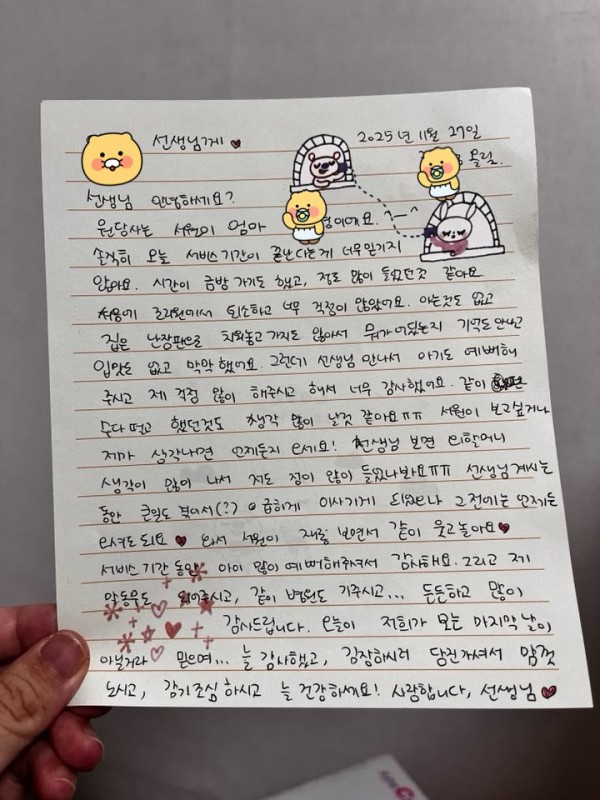 선생님께 ♥
2025년 11월 27일
올림.
선생님 안녕하세요?
원당사는 서원이 엄마 이에요. ^ㅡ^
솔직히 오늘 서비스 기간이 끝난다는게 너무 믿기지
않아요. 시간이 금방 가기도 했고, 정도 많이 들었던것 같아요
처음에 조리원에서 퇴소하고 너무 걱정이 많았어요. 아는것도 없고
집은 난장판으로 치워놓고 가지도 않아서 뭐가 어딨는지 기억도 안나고
입맛도 없고 막막했어요. 그런데 선생님 만나서 아기도 예뻐해
주시고 제 걱정 많이 해주시고 해서 너무 감사했어요. 같이
수다 떨고 했던것도 생각 많이 날것 같아요ㅠㅠ 서원이 보고싶거나
제가 생각나면 언제든지 오세요! 선생님 보면 외할머니
생각이 많이 나서 저도 정이 많이 들었나봐요ㅠㅠ 선생님 계시는
동안 큰일도 겪어서(?) 급하게 이사가게 되었으나 그 전에는 언제든
오셔도 되요 ♥ 오셔서 서원이 재롱 보면서 같이 웃고 놀아요♥
서비스 기간 동안 아이 많이 예뻐해주셔서 감사해요. 그리고 제
말동무도 되어주시고, 같이 병원도 가주시고... 든든하고 많이
감사드립니다. 오늘이 저희가 보는 마지막 날이
아닐거라 믿으며... 늘 감사했고, 김장하시러 당진가셔서 맘껏
노시고, 감기조심 하시고 늘 건강하세요! 사랑합니다, 선생님♥